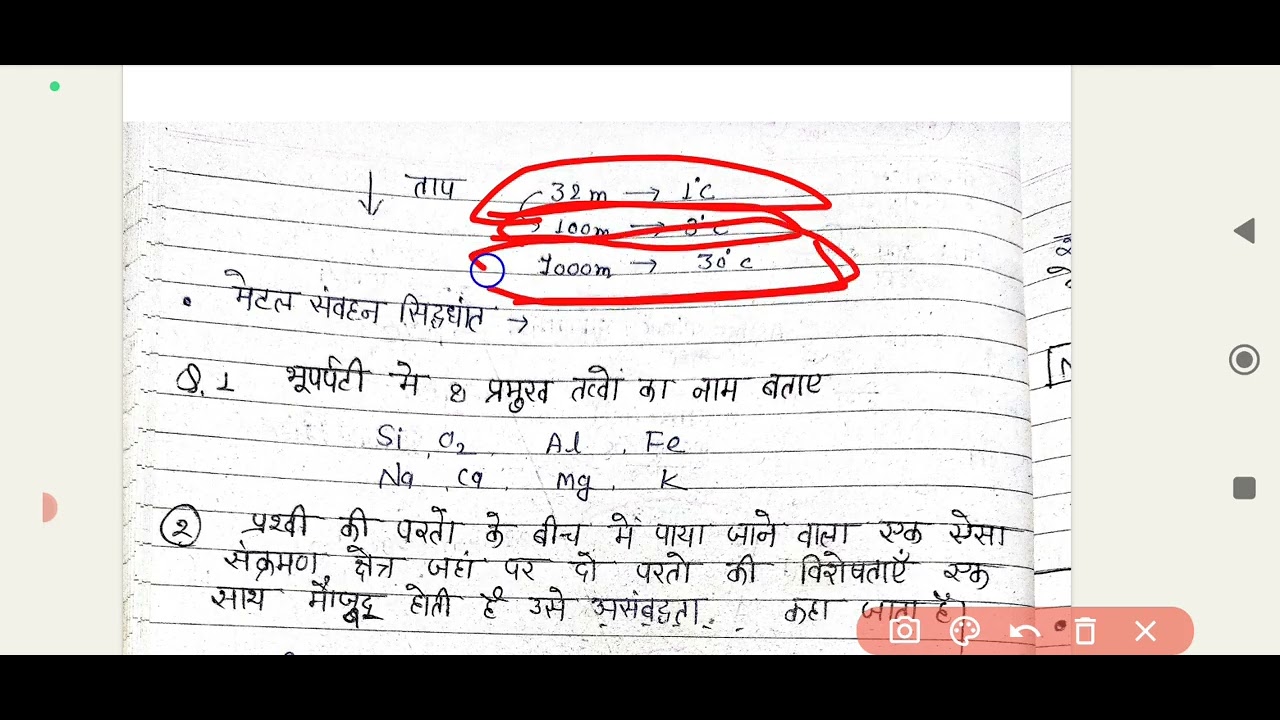 ताप 32m → 1°C
100m → 3°C
1000m → 30°C
• मेटल संवहन सिद्धांत →
Q.1 भूपर्पटी मे 8 प्रमुख तत्वों का नाम बताए
Si, O2, Al, Fe
Na, Ca, Mg, K
② प्रथ्वी की परतों के बीच में पाया जाने वाला एक ऐसा
संक्रमण क्षेत्र जहां पर दो परतो की विशेषताएँ एक
साथ मौजूद होती हैं उसे असंबद्धता कहा जाता है।